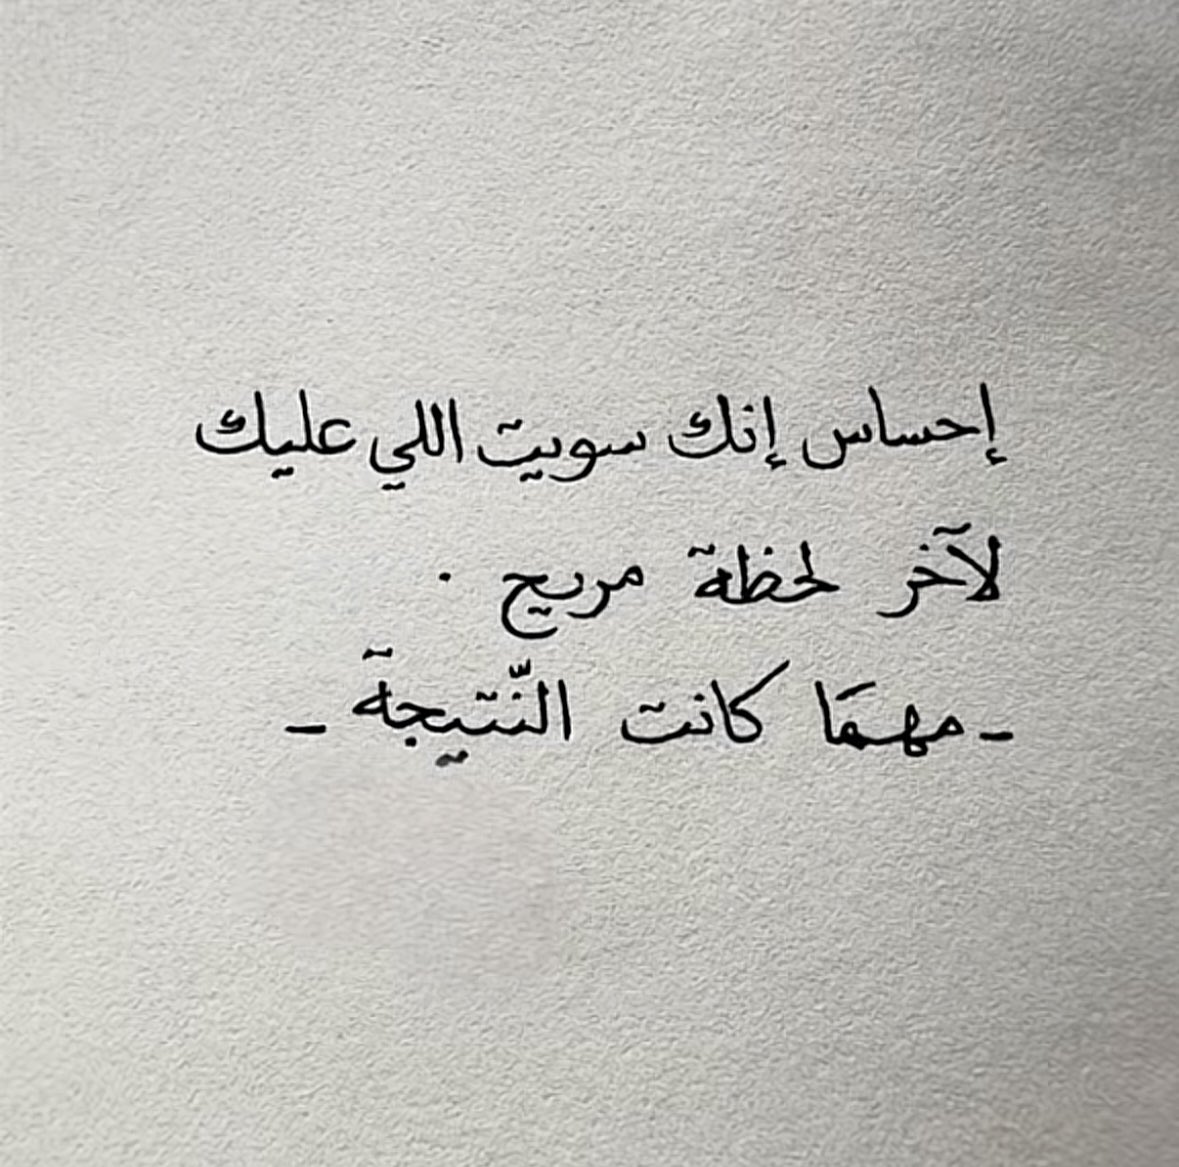 إحساس إنك سويت اللي عليك
لآخر لحظة مريح .
ـ مهمَا كانت النّتيجة ـ